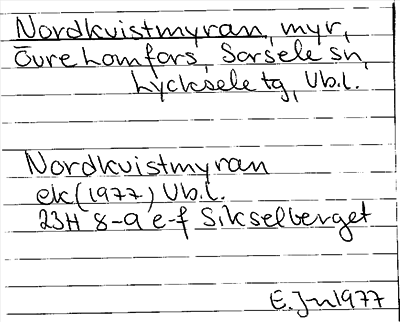 Nordkvistmyran, myr,
Övre Lomfors, Sorsele sn,
Lycksele tg, Vb.l.
Nordkvistmyran
ek (1977) Vb.l.
23H 8-9 e-f Sikselberget
E. Jn 1977